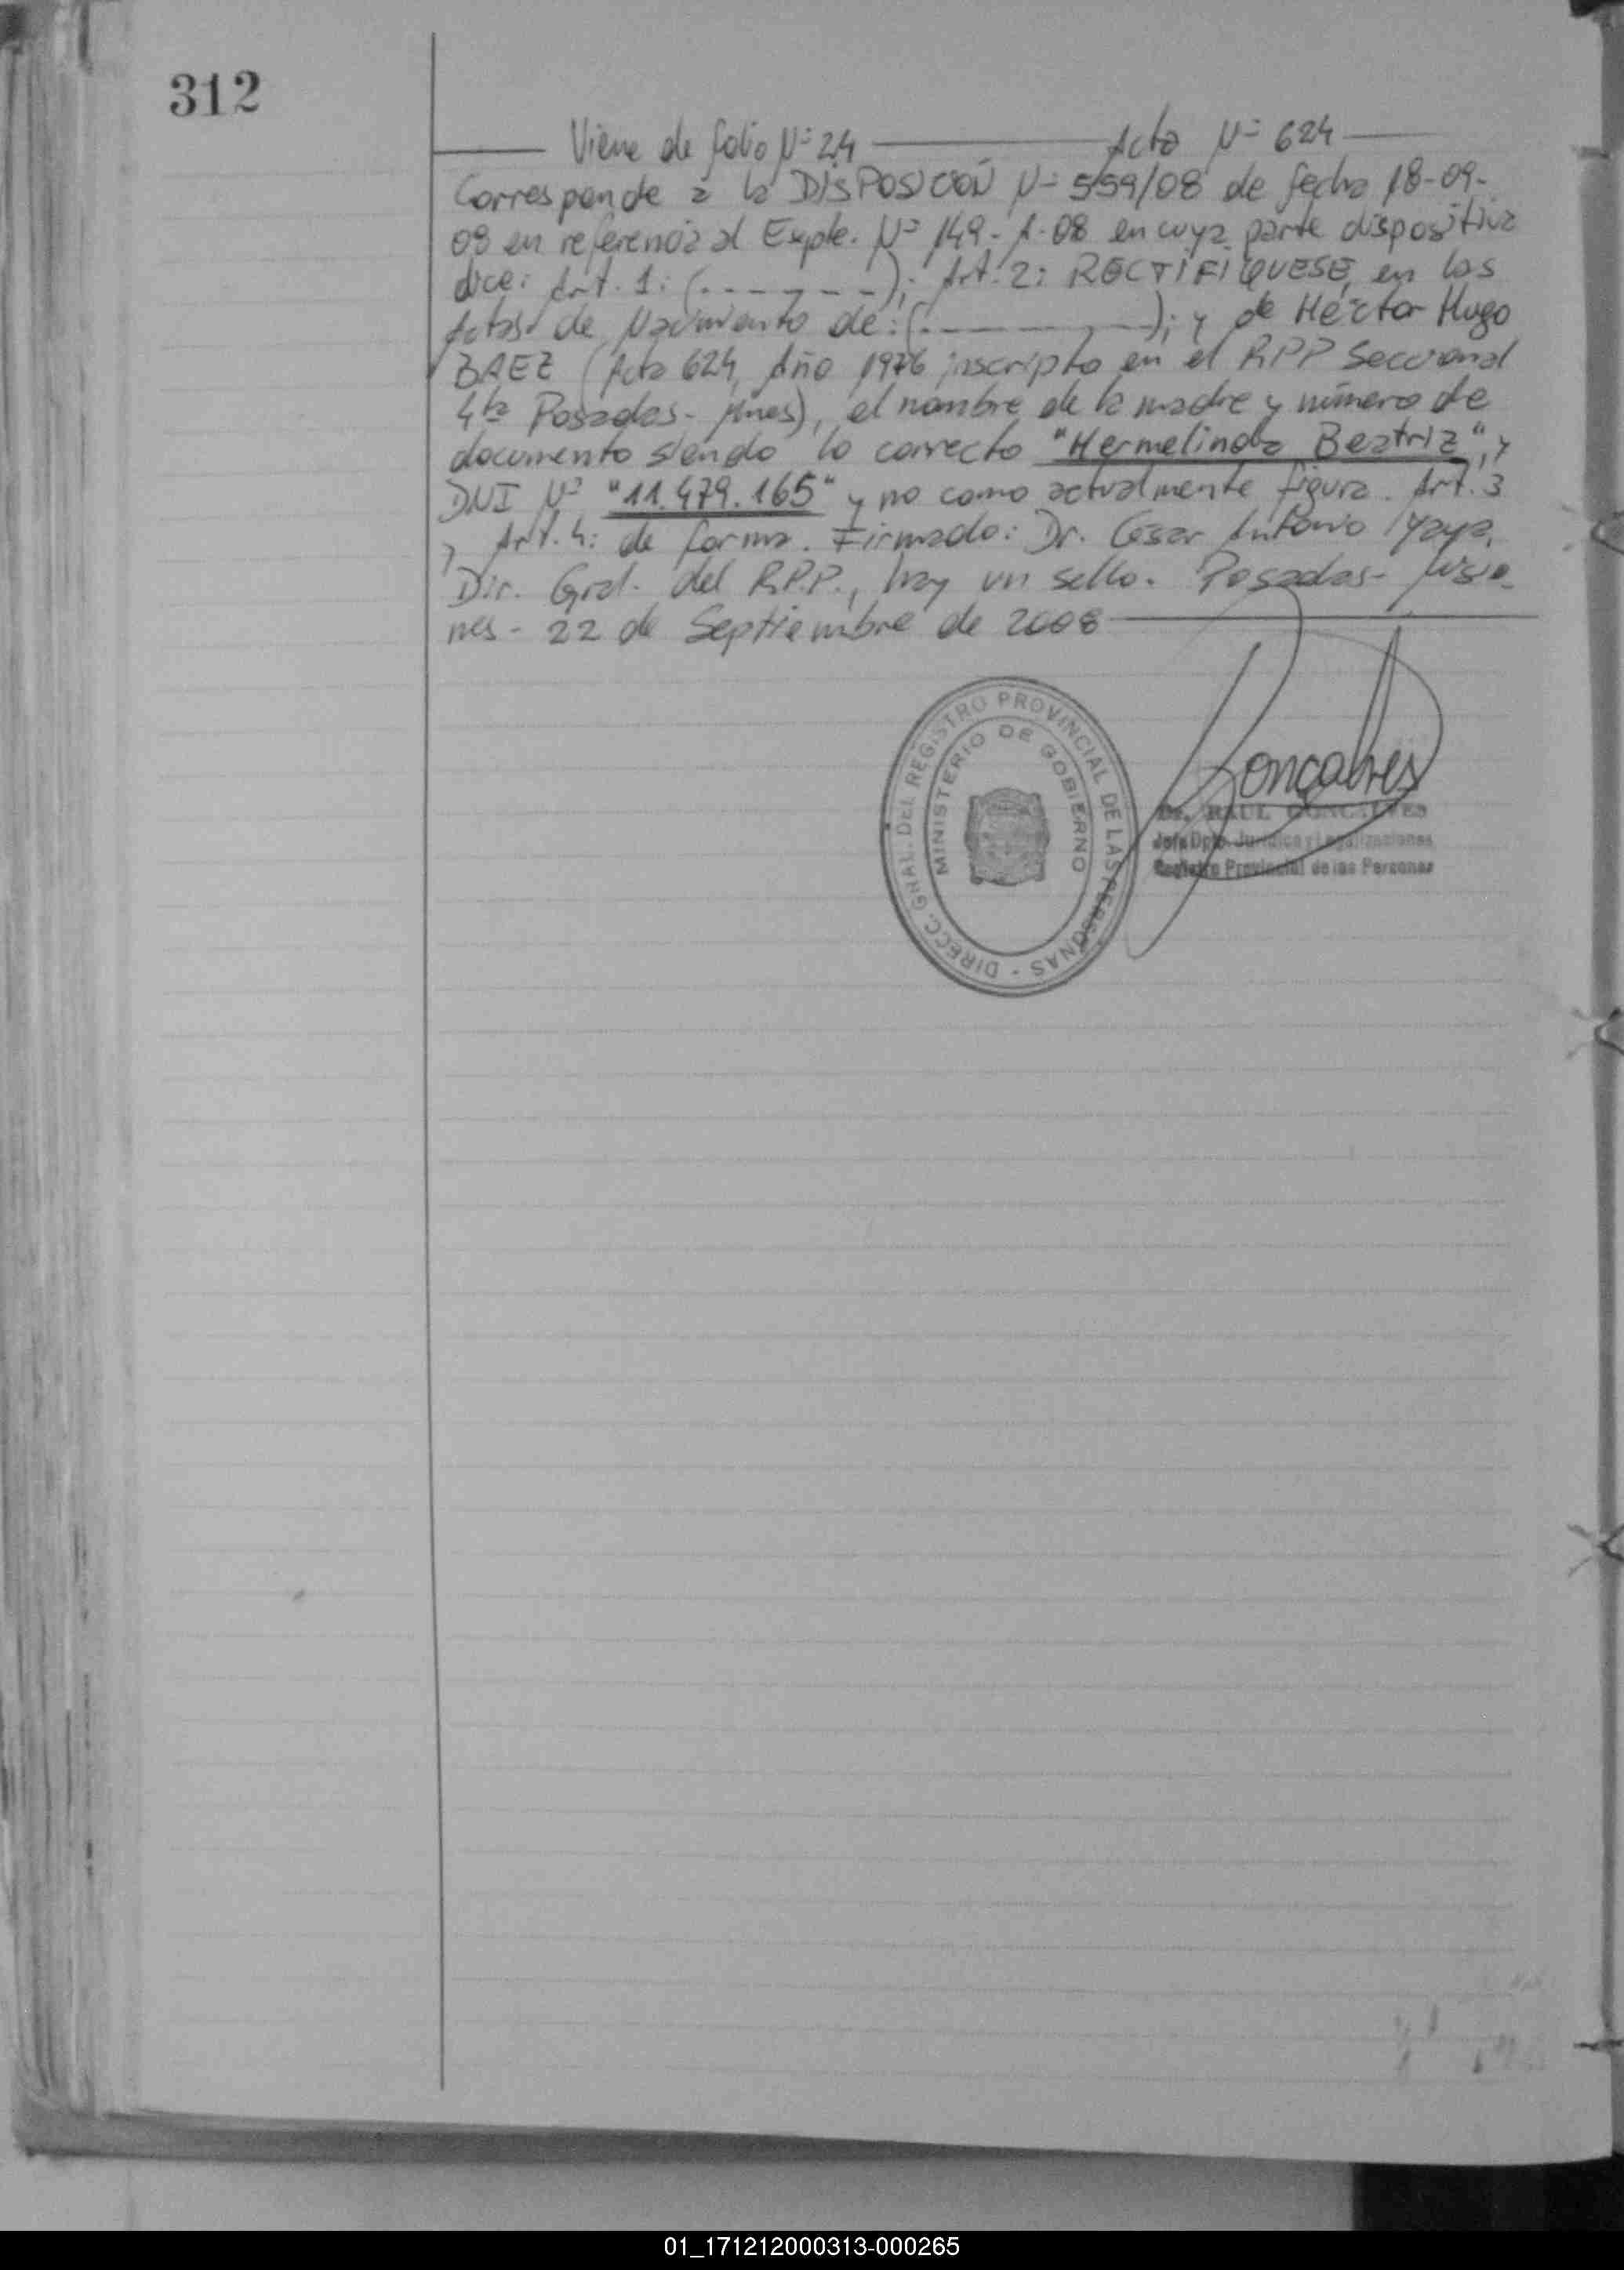 312
Viene de folio Nº 24 Acta Nº 624
Corresponde a la DISPOSICIÓN Nº 559/08 de fecha 18-09-
08 en referencia al Expte. Nº 149-A-08 en cuya parte dispositiva
dice: Art. 1: (. - - - - - -); Art. 2: RECTIFIQUESE, en las
Actas de Nacimiento de: (. - - - - - -); y de Héctor Hugo
BAEZ (Acta 624, Año 1976 inscripto en el RPP Seccional
4ta Posadas- Mnes), el nombre de la madre y número de
documento siendo lo correcto "Hermelinda Beatriz", y
DNI Nº "11.479.165" y no como actualmente figura. Art. 3
y Art. 4: de forma. Firmado: Dr. Cesar Antonio
Dir. Gral. del R.P.P., hay un sello. Posadas- Misio-
nes- 22 de Septiembre de 2008
DIRECC. GNAL. DEL REGISTRO PROVINCIAL DE LAS PERSONAS -
MINISTERIO DE GOBIERNO
Goncalves
Dr. RAUL GONCALVES
Jefe Dpto. Jurídico y Legalizaciones
Registro Provincial de las Personas
01_171212000313-000265